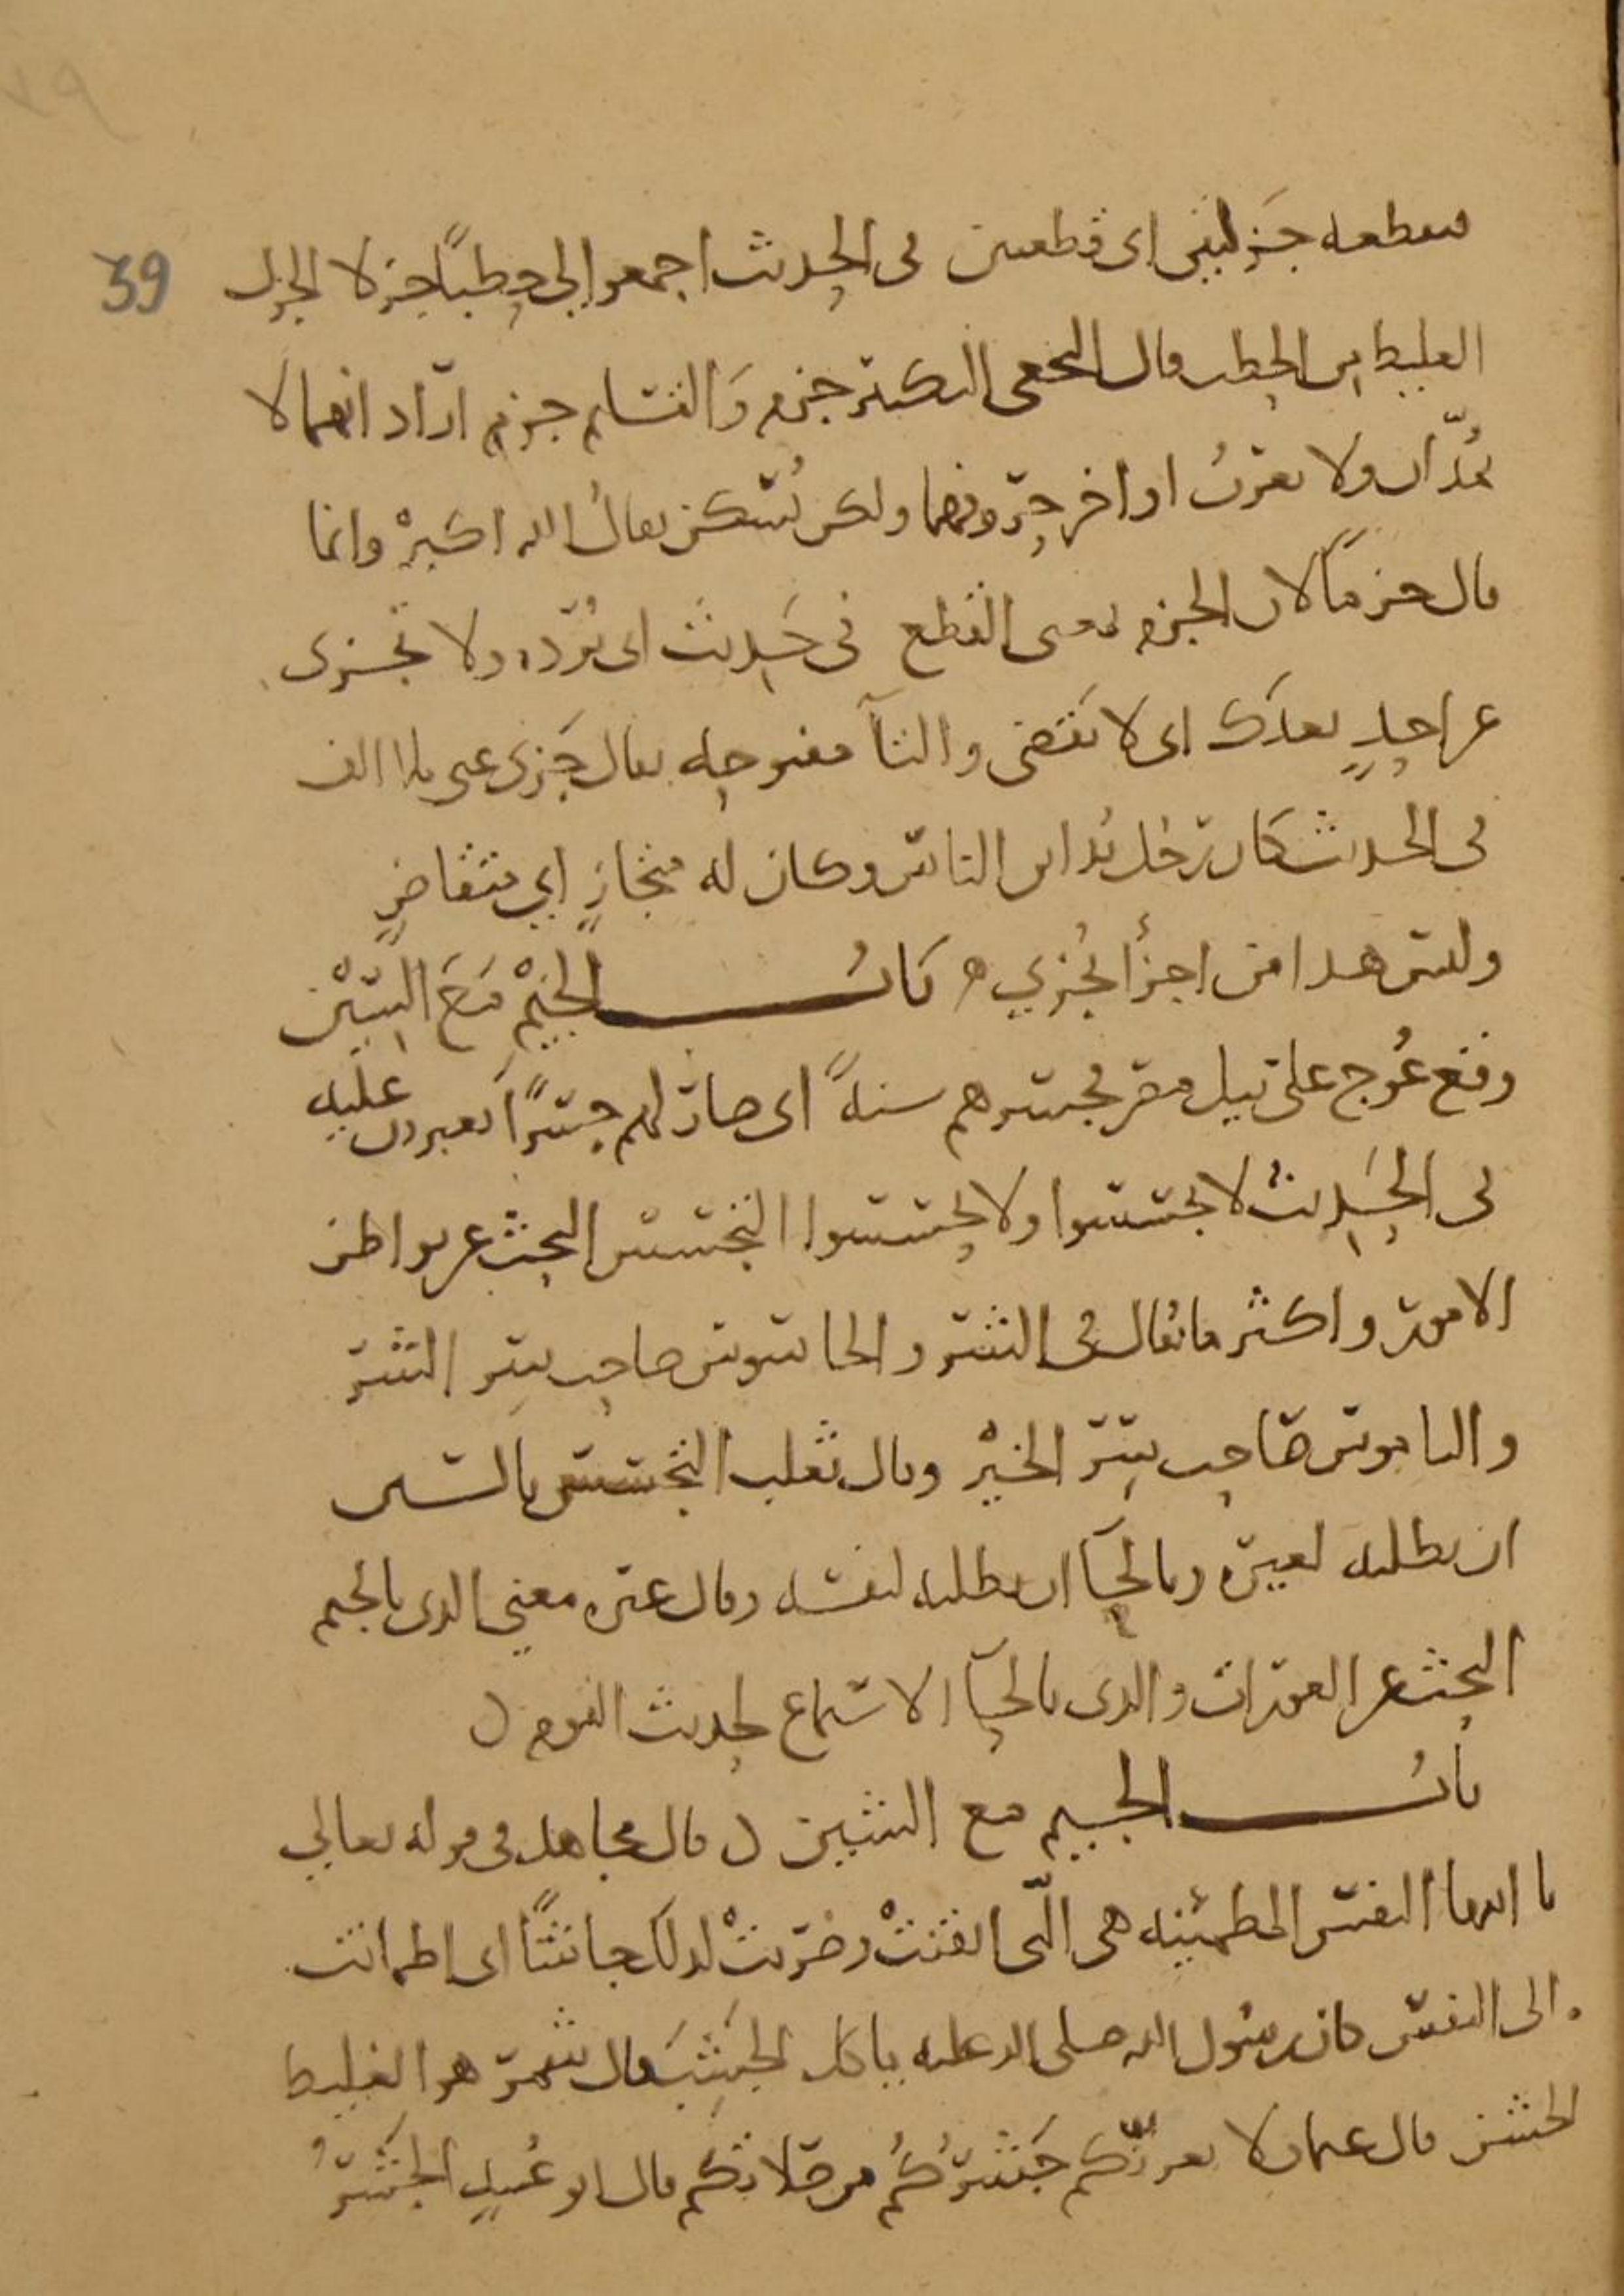 39
فقطعه جزلتين اى قطعتين فى الحديث اجمعوا لى حطبًا جزلا الجزل
الغليظ من الحطب قال النخعى التكبير جزم وَالتسليم جزم ارَاد انهما لا
يُمدّان ولا يعرب اواخر حروفهما ولكن يُسَكن يقال الله اكبرْ وانما
قال جزمًا لان الجزم بمعنى القطع فى حَديث اى بُرده ولا تجزى
عن احدٍ بعدَك اى لا تَقضى والتآ مفتوحه يقال جَزى عنى بلا الف
فى الحديث كان رَجُل يُداين الناسَ وكان له متجازٍ اي متقاضٍ
وليسَ هذا من اجزأ يُجزي ه بَابُ الجيْم مَعَ السّيْن
وقع عُوج على نيل مصر فجسرهم سنةً اى صار لهم جسْرًا يعبرون عليه
فى الحَديث لا تجسسوا ولا تحسسوا التجسس البحث عن بواطن
الامور واكثر ما يُقال فى الشر والجاسوس صاحب سر الشر
والناموس صَاحب سِرّ الخيْر وقال ثعلب التجسس بالجيم
ان يطلبه لغيره وبالحآ ان يطلبه لنفسه وقال غيره معني الذى بالجيم
البحث عن العورات والذى بالحآ الاستماع لحديث القوم ن
بابُ الجيم مع الشين ن قال مجاهد فى قوله تعالي
يا ايتها النفس المطمئنه هى الّتى ايقنتْ وضرَبتْ لذلك جاشًا اى اطمانت
الى النفس كان رسُول الله صلى الله عليه ياكل الجَشِبَ قال شمر هو الغليظ
الخشن قال عثمان لا يغرنّكم جَشَرُكُم من صَلاتكم قال ابو عُبيدٍ الجَشَرُ